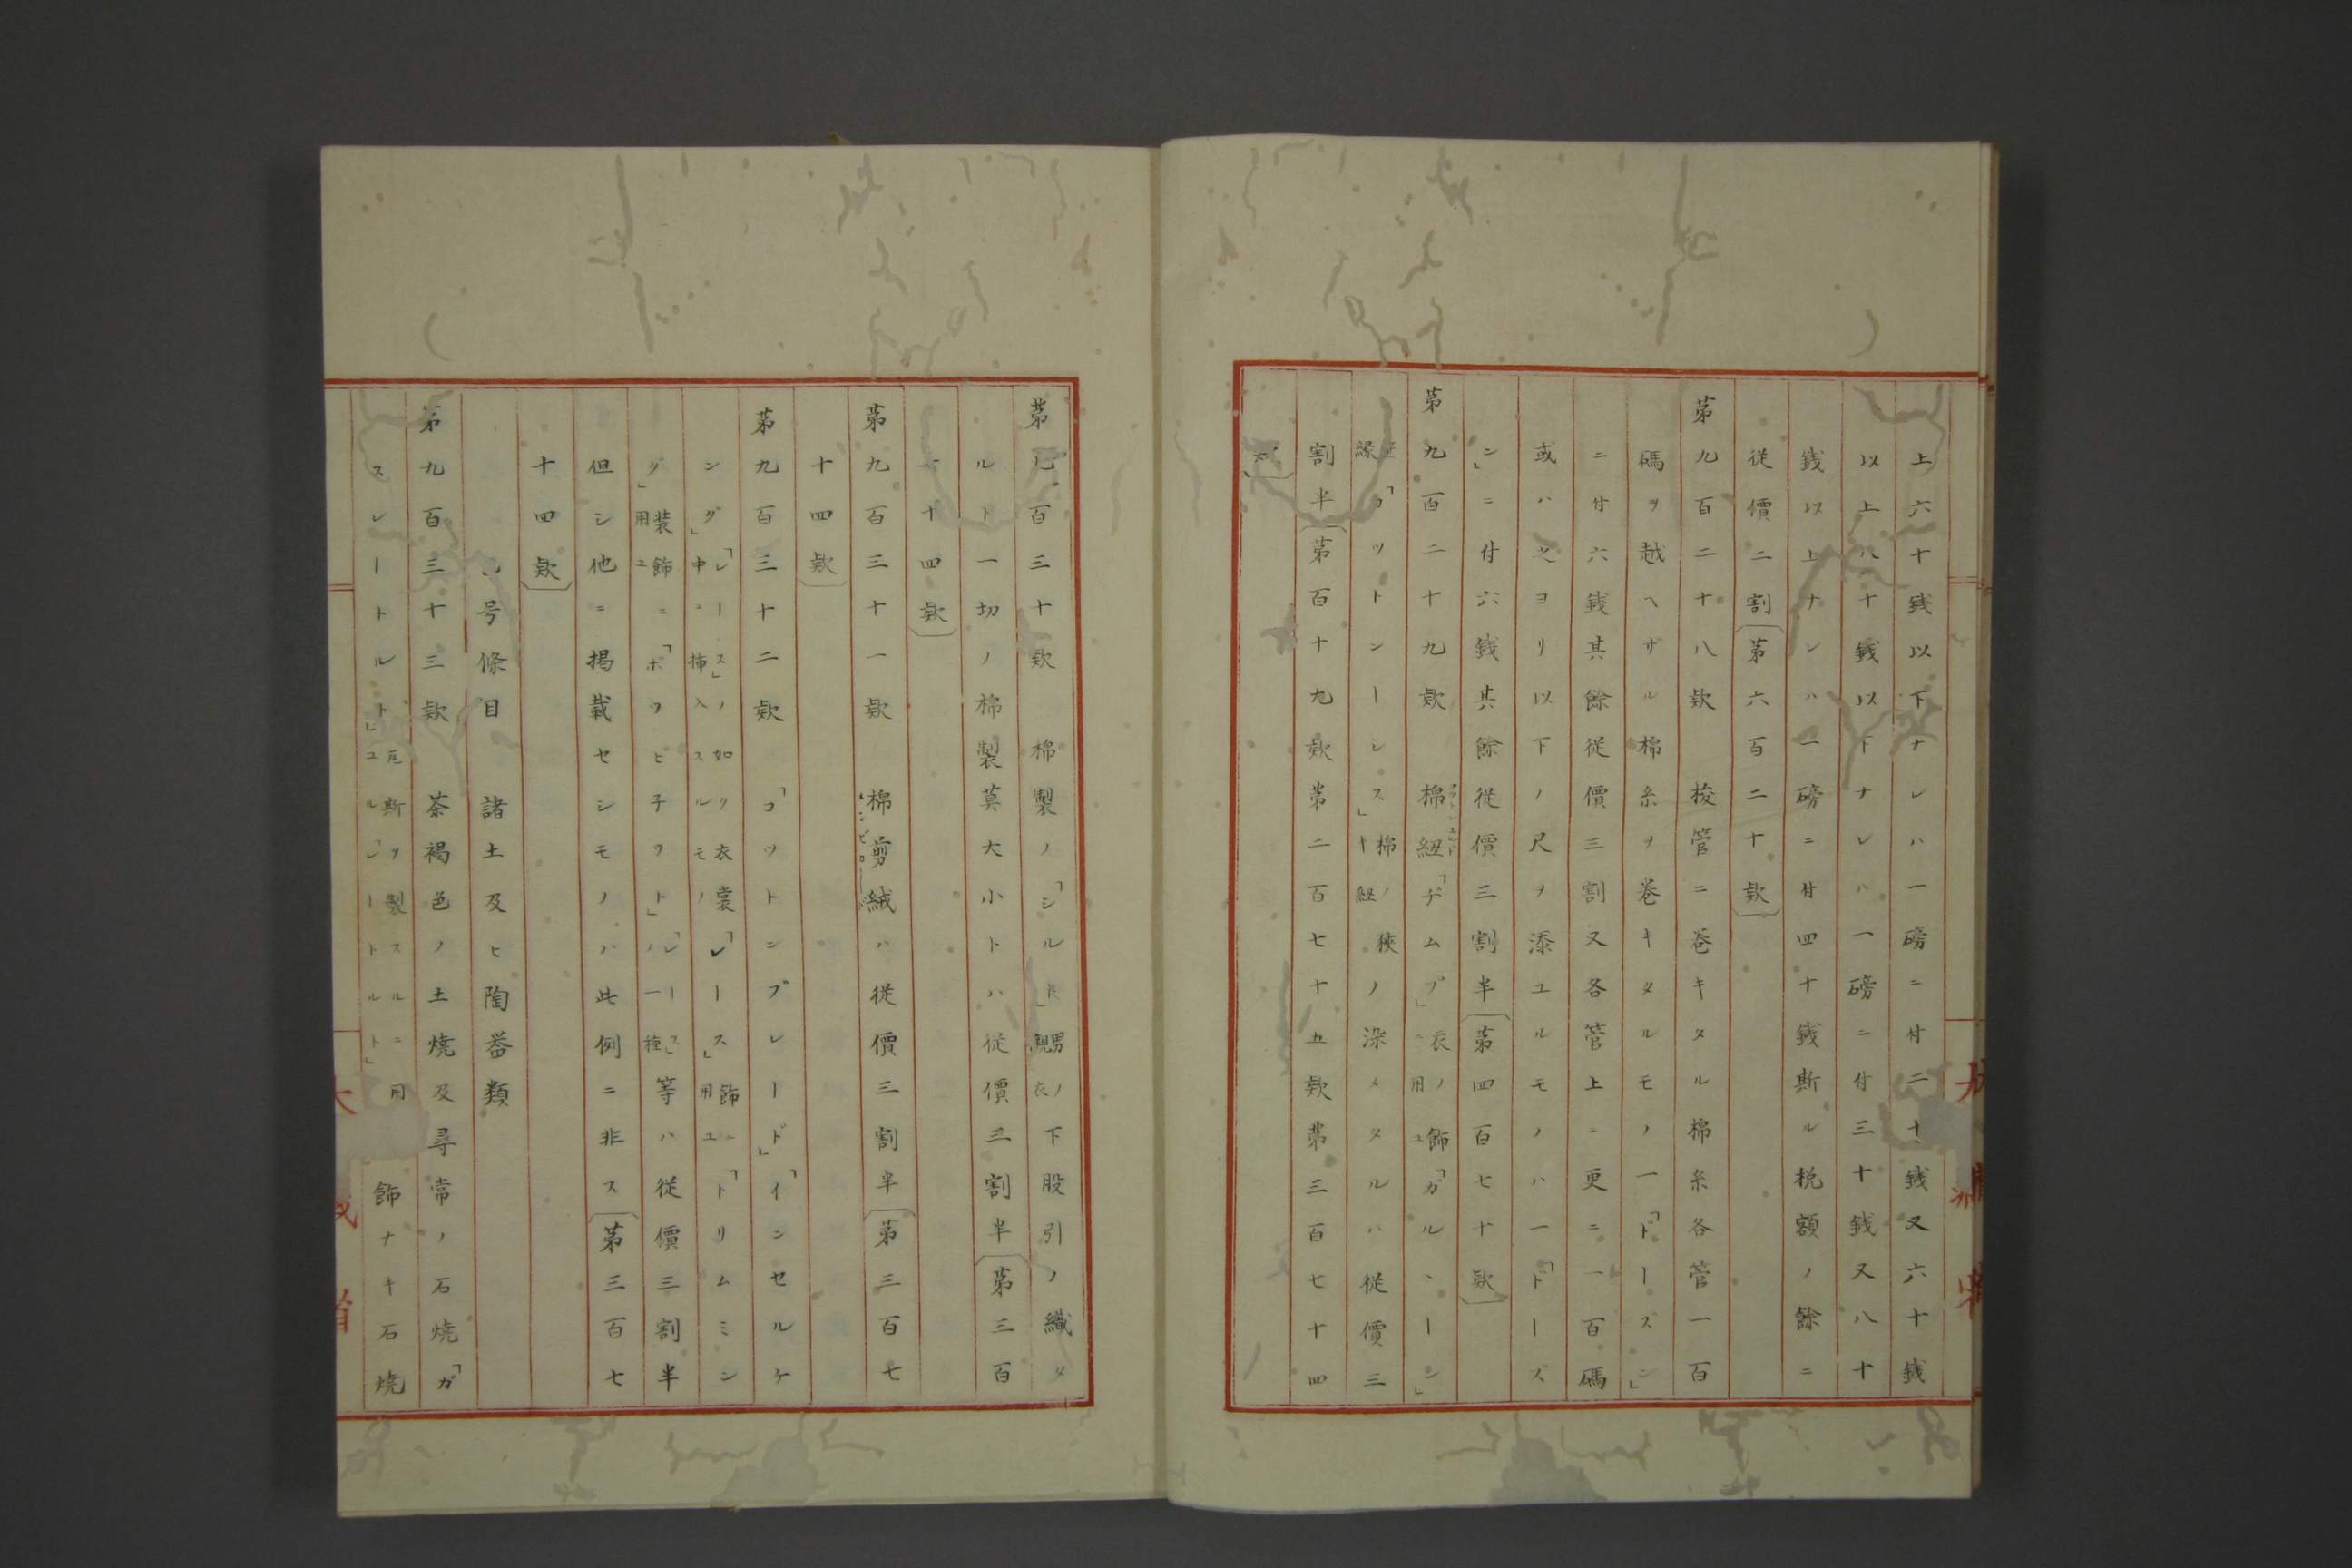 上六十銭以下ナレハ一磅ニ付二十銭又六十銭
以上八十銭以下ナレハ一磅ニ付三十銭又八十
銭以上ナレハ一磅ニ付四十銭斯ル税額ノ餘ニ
従價二割(第六百二十款)
第九百二十八款 梭管ニ巻キタル棉糸各管一百
碼ヲ越ヘザル棉糸ヲ巻キタルモノ一「ドーズン」
ニ付六銭其餘従價三割又各管上ニ更ニ一百碼
或ハ之ヨリ以下ノ尺ヲ添ユルモノハ一「ドーズ
ン」ニ付六銭其餘従價三割半(第四百七十款)
第九百二十九款 棉紐「ヂムプ」衣ノ飾ニ用ユ「ガルーン」
縁「コットンーシス」棉ノ狹キ紐ノ染メタルハ従價三
割半(第百十九款第二百七十五款第三百七十四
款)
第九百三十款 棉製ノ「シルト」男ノ襯衣下股引ノ織タ
ルト一切ノ棉製莫大小トハ従價三割半(第三百
七十四款)
第九百三十一款 棉剪絨ハ従價三割半(第三百七
十四款)
第九百三十二款 「コットンブレード」「インセルケ
ング」「レース」ノ如ク衣裳ノ中ニ挿入スルモノ「レース」飾ニ用ユ「トリムミン
グ」装飾ニ用ユ「ボワビ子ワト」「レース」ノ一種等ハ従價三割半
但シ他ニ掲載セシモノハ此例ニ非ス(第三百七
十四款)
号條目 諸土及ヒ陶器類
第九百三十三款 茶褐色ノ土焼及尋常ノ石焼「ガ
スレートルト」瓦斯ヲ製スルニ用ユル「レートルト」飾ナキ石焼
大蔵省